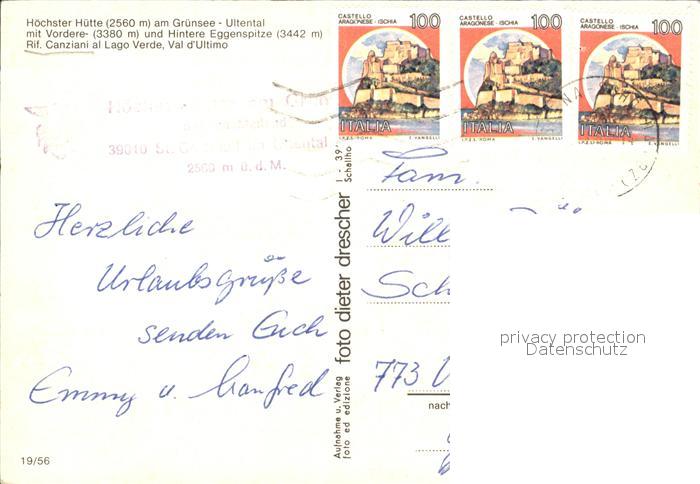 Höchster Hütte (2560 m) am Grünsee - Ultental
mit Vordere- (3380 m) und Hintere Eggenspitze (3442 m)
Rif. Canziani al Lago Verde, Val d'Ultimo
CASTELLO
ARAGONESE - ISCHIA
100
ITALIA
I.P.Z.S. ROMA E. VANGELLI
CASTELLO
ARAGONESE - ISCHIA
100
ITALIA
I.P.Z.S. ROMA E. VANGELLI
CASTELLO
ARAGONESE - ISCHIA
100
ITALIA
I.P.Z.S. E. VANGELLI
39010 St.
2560 m ü. d. M.
Herzliche
Urlaubsgrüße
senden Euch
Emmy u. Manfred
Aufnahme u. Verlag
foto ed edizione
foto dieter drescher
I - 39
Schallho
Fam.
Will
Sch
773 V
nach
privacy protection
Datenschutz
19/56